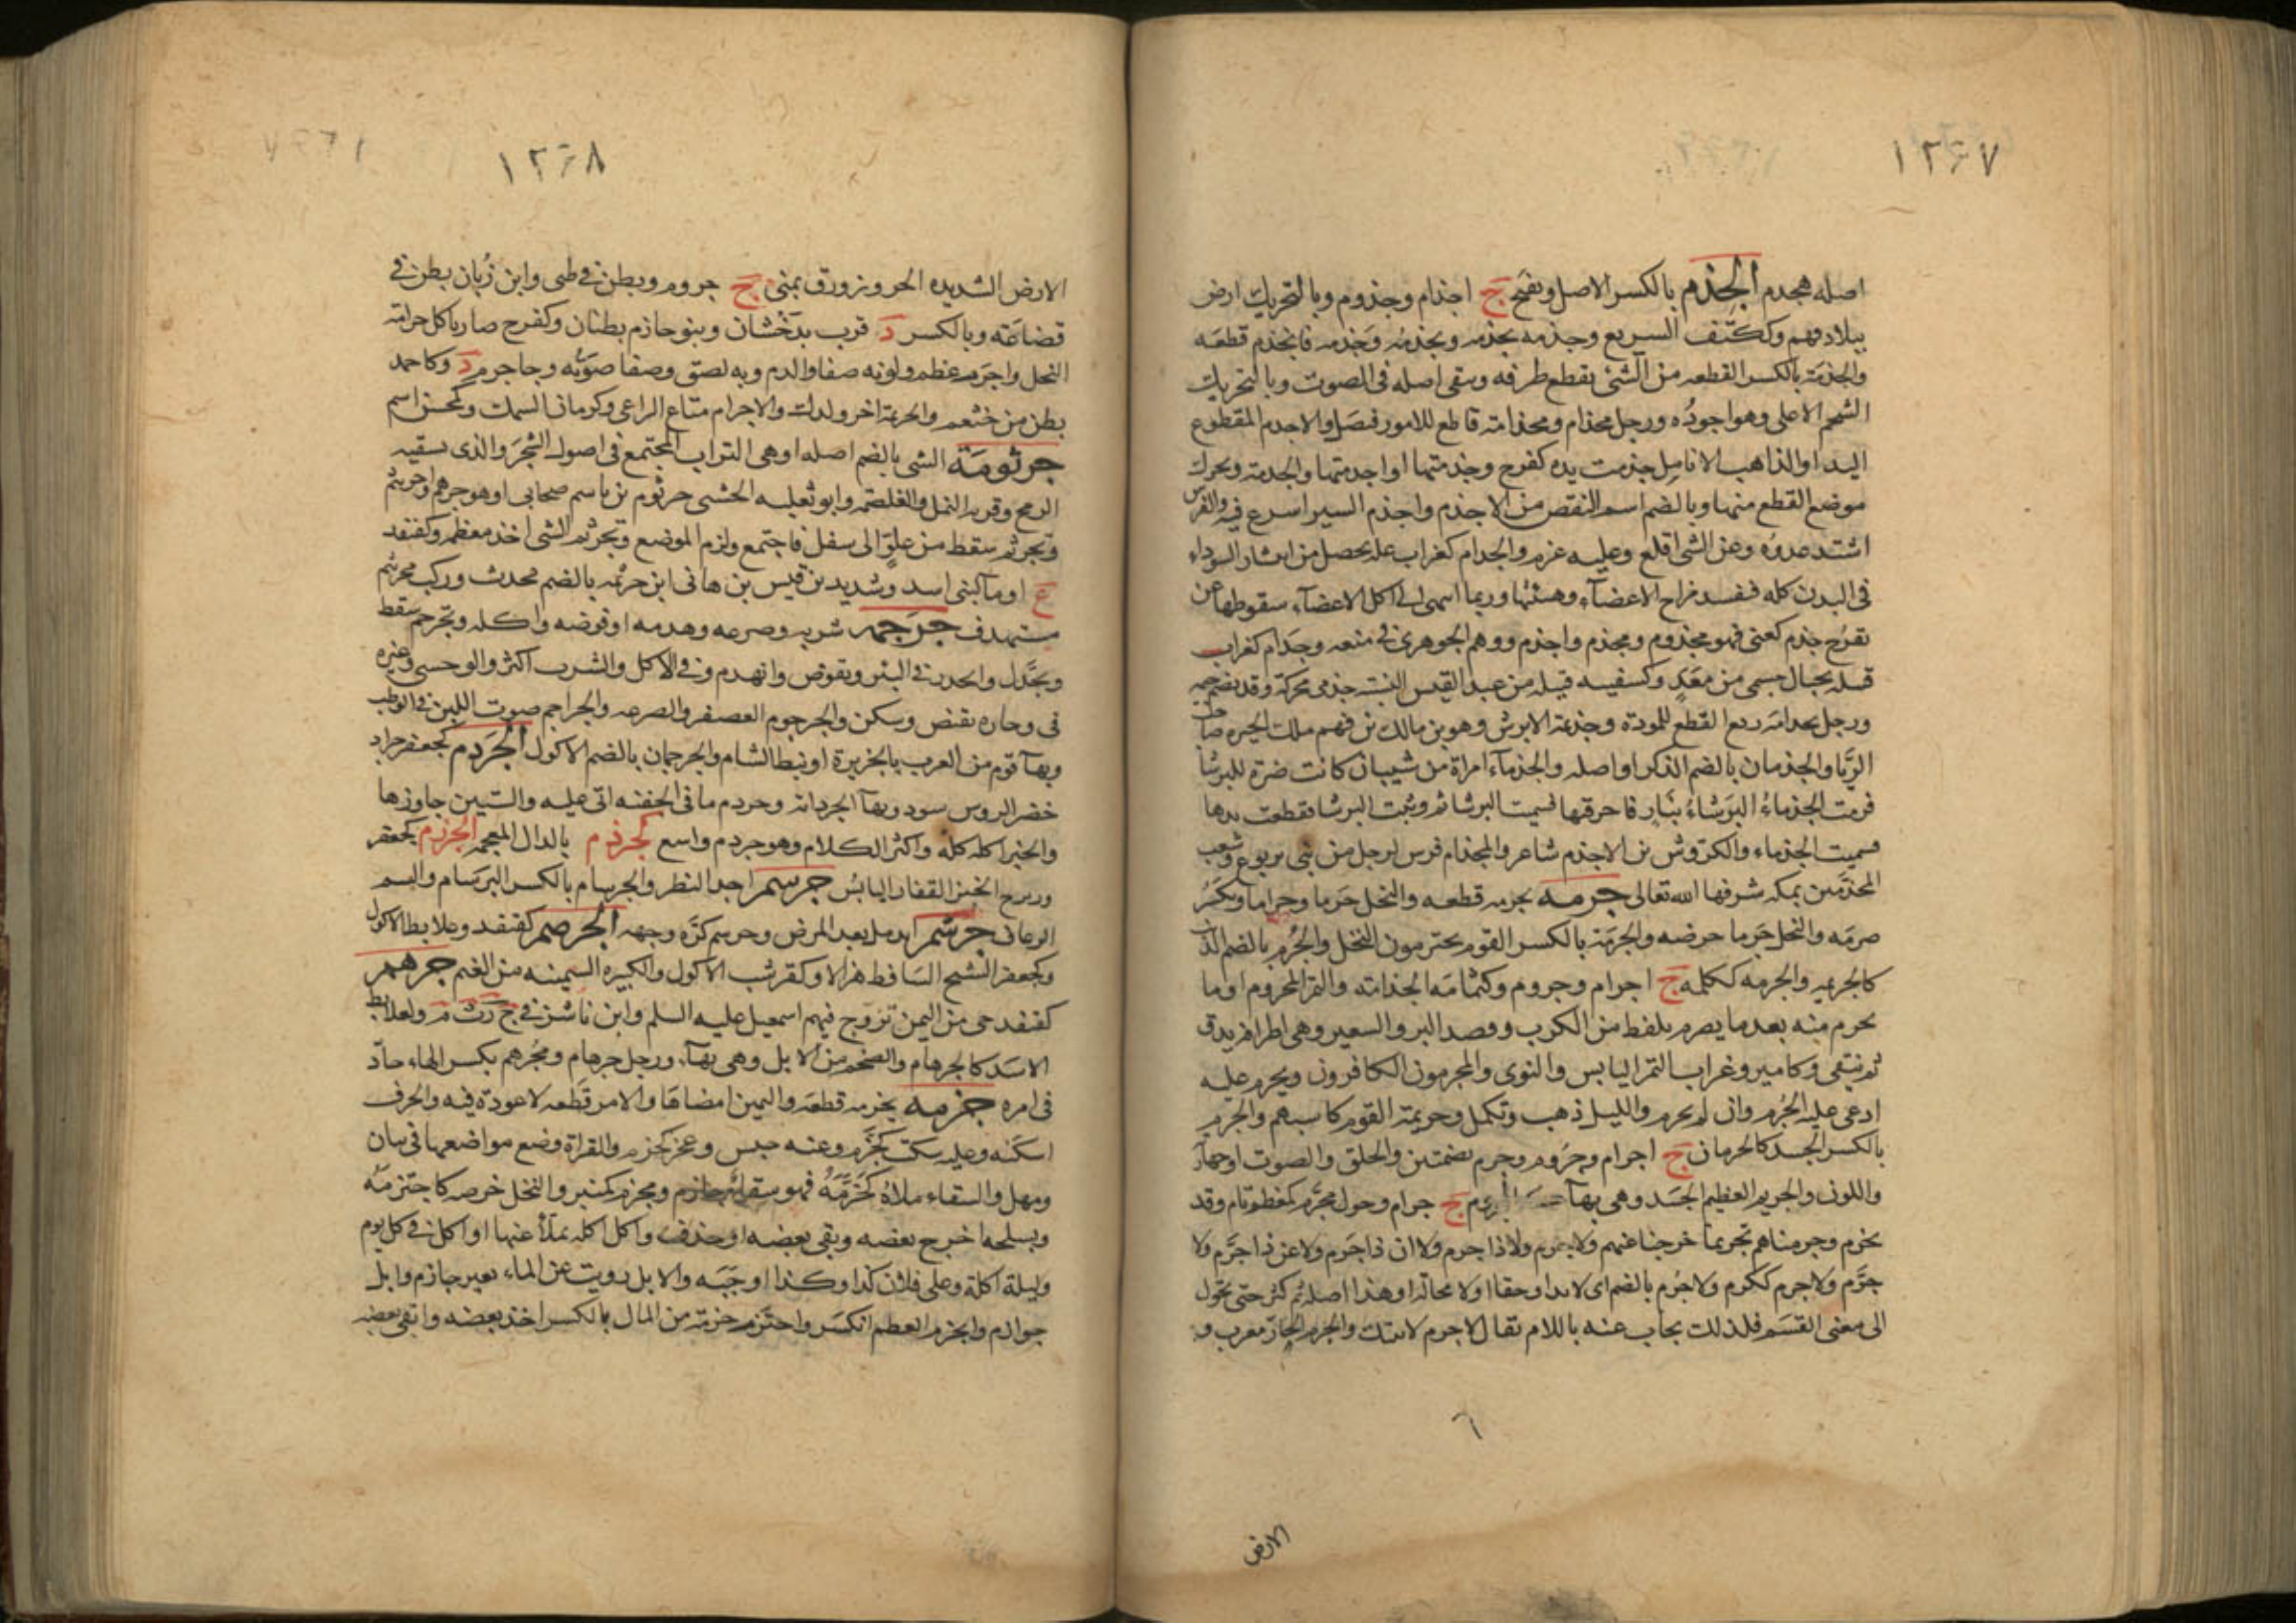 ١٢٤٧
اصله هجدم الجذم بالكسر الاصل ويفتح ج اجذام وجذوم وبالتحريك ارض
ببلاد فهم وككتف السريع وجذمه يجذمه ويجذمه وجذمه فانجذم قطعه
والجذمة بالكسر القطعه من الشئ يقطع طرفه ويبقى اصله فى الصوت وبالتحريك
الشحم الاعلى وهو اجوده ورجل مجذام ومجذامة قاطع للامور فيصل والاجذم المقطوع
اليد او الذاهب الانامل جذمت يده كفرح وجذمتها او اجذمتها والجذمة ويحرك
موضع القطع منها وبالضم اسم النقص من الاجذم واجذم السير اسرع فيه والفرس
اشتد عدوه وعن الشئ اقلع وعليه عزم والجذام كغراب علة يحصل من انتشار السوداء
فى البدن كله فيفسد مزاج الاعضآء وهيئتها وربما انتهى الى اكل الاعضآء سقوطها عن
تقرح جذم كعنى فهو مجذوم ومجذم واجذم ووهم الجوهرى فى منعه وجذام كغراب
قبيلة بجبال حسمى من معد وكسفينه قبيله من عبد القيس النسبة جذمى محركة وقد يضم جيمه
ورجل مجذامة سريع القطع للمودة وجذيمة الابرش وهو بن مالك بن فهم ملك الحيره صاحب
الزبا والجذمان بالضم الذكر او اصله والجذمآء امراة من شيبان كانت ضرة للبرشا
فرمت الجذماء البرشاء بنار فاحرقتها فسميت البرشا ثم وثبت البرشا فقطعت يدها
فسميت الجذماء والكروش بن الاجذم شاعر والمجذام فرس لرجل من بنى يربوع وشعب
المجذمين بمكة شرفها الله تعالى جرمه يجرمه قطعه والنخل جرما وجراما ويكسر
صرمه والنخل جرما خرصه والجرمة بالكسر القوم يجترمون النخل والجرم بالضم الذنب
كالجريمه والجرمه ككلمه ج اجرام وجروم وكثمامه الجذامة والتمر المجروم او ما
يجرم منه بعد ما يصرم يلقط من الكرب وقصد البر والشعير وهى اطرافه يدق
ثم ينقى وكامير وغراب التمر اليابس والنوى والمجرمون الكافرون ويجرم عليه
ادعى عليه الجرم وان لم يجرم والليل ذهب وتكمل وجريمة القوم كاسبهم والجرم
بالكسر الجسد كالجرمان ج اجرام وجروم وجرم بضمتين والحلق والصوت او جهارته
واللون والجريم العظيم الجسد وهى بهآ ج جرام وحول مجرم كمعظم تام وقد
تجرم وجرمناهم تجريما خرجنا عنهم ولا جرم ولا ذا جرم ولا ان ذا جرم ولا عن ذا جرم ولا
جرم ولا جرم ككرم ولا جرم بالضم اى لا بد او حقا او لا محالة او هذا اصله ثم كثر حتى تحول
الى معنى القسم فلذلك يجاب عنه باللام يقال لا جرم لاتينك والجرم الحار معرب و
الارض
١٢٤٨
الارض الشديده الحر وزورق يمنى ج جروم وبطن فى طى وابن زبان بطن فى
قضاعه وبالكسر د قرب بدخشان وبنو جازم بطنان وكفرح صار ياكل جرامة
النخل واجرم عظم ولونه صفا والدم به لصق وصفا صوته وجاجرم د وكاحمد
بطن من خثعم والجريمة اخر ولدك والاجرام متاع الراعى وكرمان السمك وكمحسن اسم
جرثومة الشى بالضم اصله او هى التراب المجتمع فى اصول الشجر والذى تسفيه
الريح وقرية النمل والغلصمة وابو ثعلبه الخشنى جرثوم بن ياسم صحابى او هو جرهم واجرنثم
وتجرثم سقط من علو الى سفل فاجتمع ولزم الموضع وتجرثم الشى اخذ معظمه وكقنفذ
ع او مآ لبنى اسد وشديد بن قيس بن هانى ابن جرثمه بالضم محدث وركب مجرنثم
مستهدف جرجمه شربه وصرعه وهدمه او قوضه واكله وتجرجم سقط
وتجدل وانحدر فى البئر وتقوض وانهدم وفى الاكل والشرب اكثر والوحشى وغيره
فى وجاره تقبض وسكن والجرجوم العصفر والصرعه والجراجم صوت اللبن فى الوطب
وبهآ قوم من العرب بالجزيرة او نبط الشام والجرجمان بالضم الاكول الجردم كجعفر جراد
خضر الروس سود وبهآ الجردانة وجردم ما فى الجفنة اتى عليه والستين جاوزها
والخبز اكله كله واكثر الكلام وهو جردم واسع كجرذم بالذال المعجمه الجرزم كجعفر
وزبرج الخبز القفار اليابس جرسم احد النظر والجرسام بالكسر البرسام والسم
الزعاف جرشم اندمل بعد المرض وجرشم كره وجهه الجرضم كقنفد وعلابط الاكول
وكجعفر الشيخ الساقط هزالا وكقرشب الاكول والكبيره السمينه من الغنم جرهم
كقنفد حى من اليمن تزوج فيهم اسمعيل عليه السلم وابن ناشز فى ج د ث م ولعلابط
الاسد كالجرهام والضخم من الابل وهى بهآ ورجل جرهام ومجرهم بكسر الهاء حاد
فى امره جزمه يجزمه قطعه واليمين امضاها والامر قطعه لا عودة فيه والحرف
اسكنه وعليه سكت كجزم وعنه جبن وعجز كجزم والقراة وضع مواضعها فى بيان
ومهل والسقاء ملاه كجزمه فهو سقاء جازم ومجزم كمنبر والنخل خرصه كاجتزمه
وبسلحه اخرج بعضه وبقى بعضه او حذف واكل اكله تملا عنها او اكل فى كل يوم
وليلة اكلة وعلى فلان كذا وكذا اوجبه والابل رويت عن الماء بعير جازم وابل
جوازم وانجزم العظم انكسر واجتزم جزمة من المال بالكسر اخذ بعضه وابقى بعضه